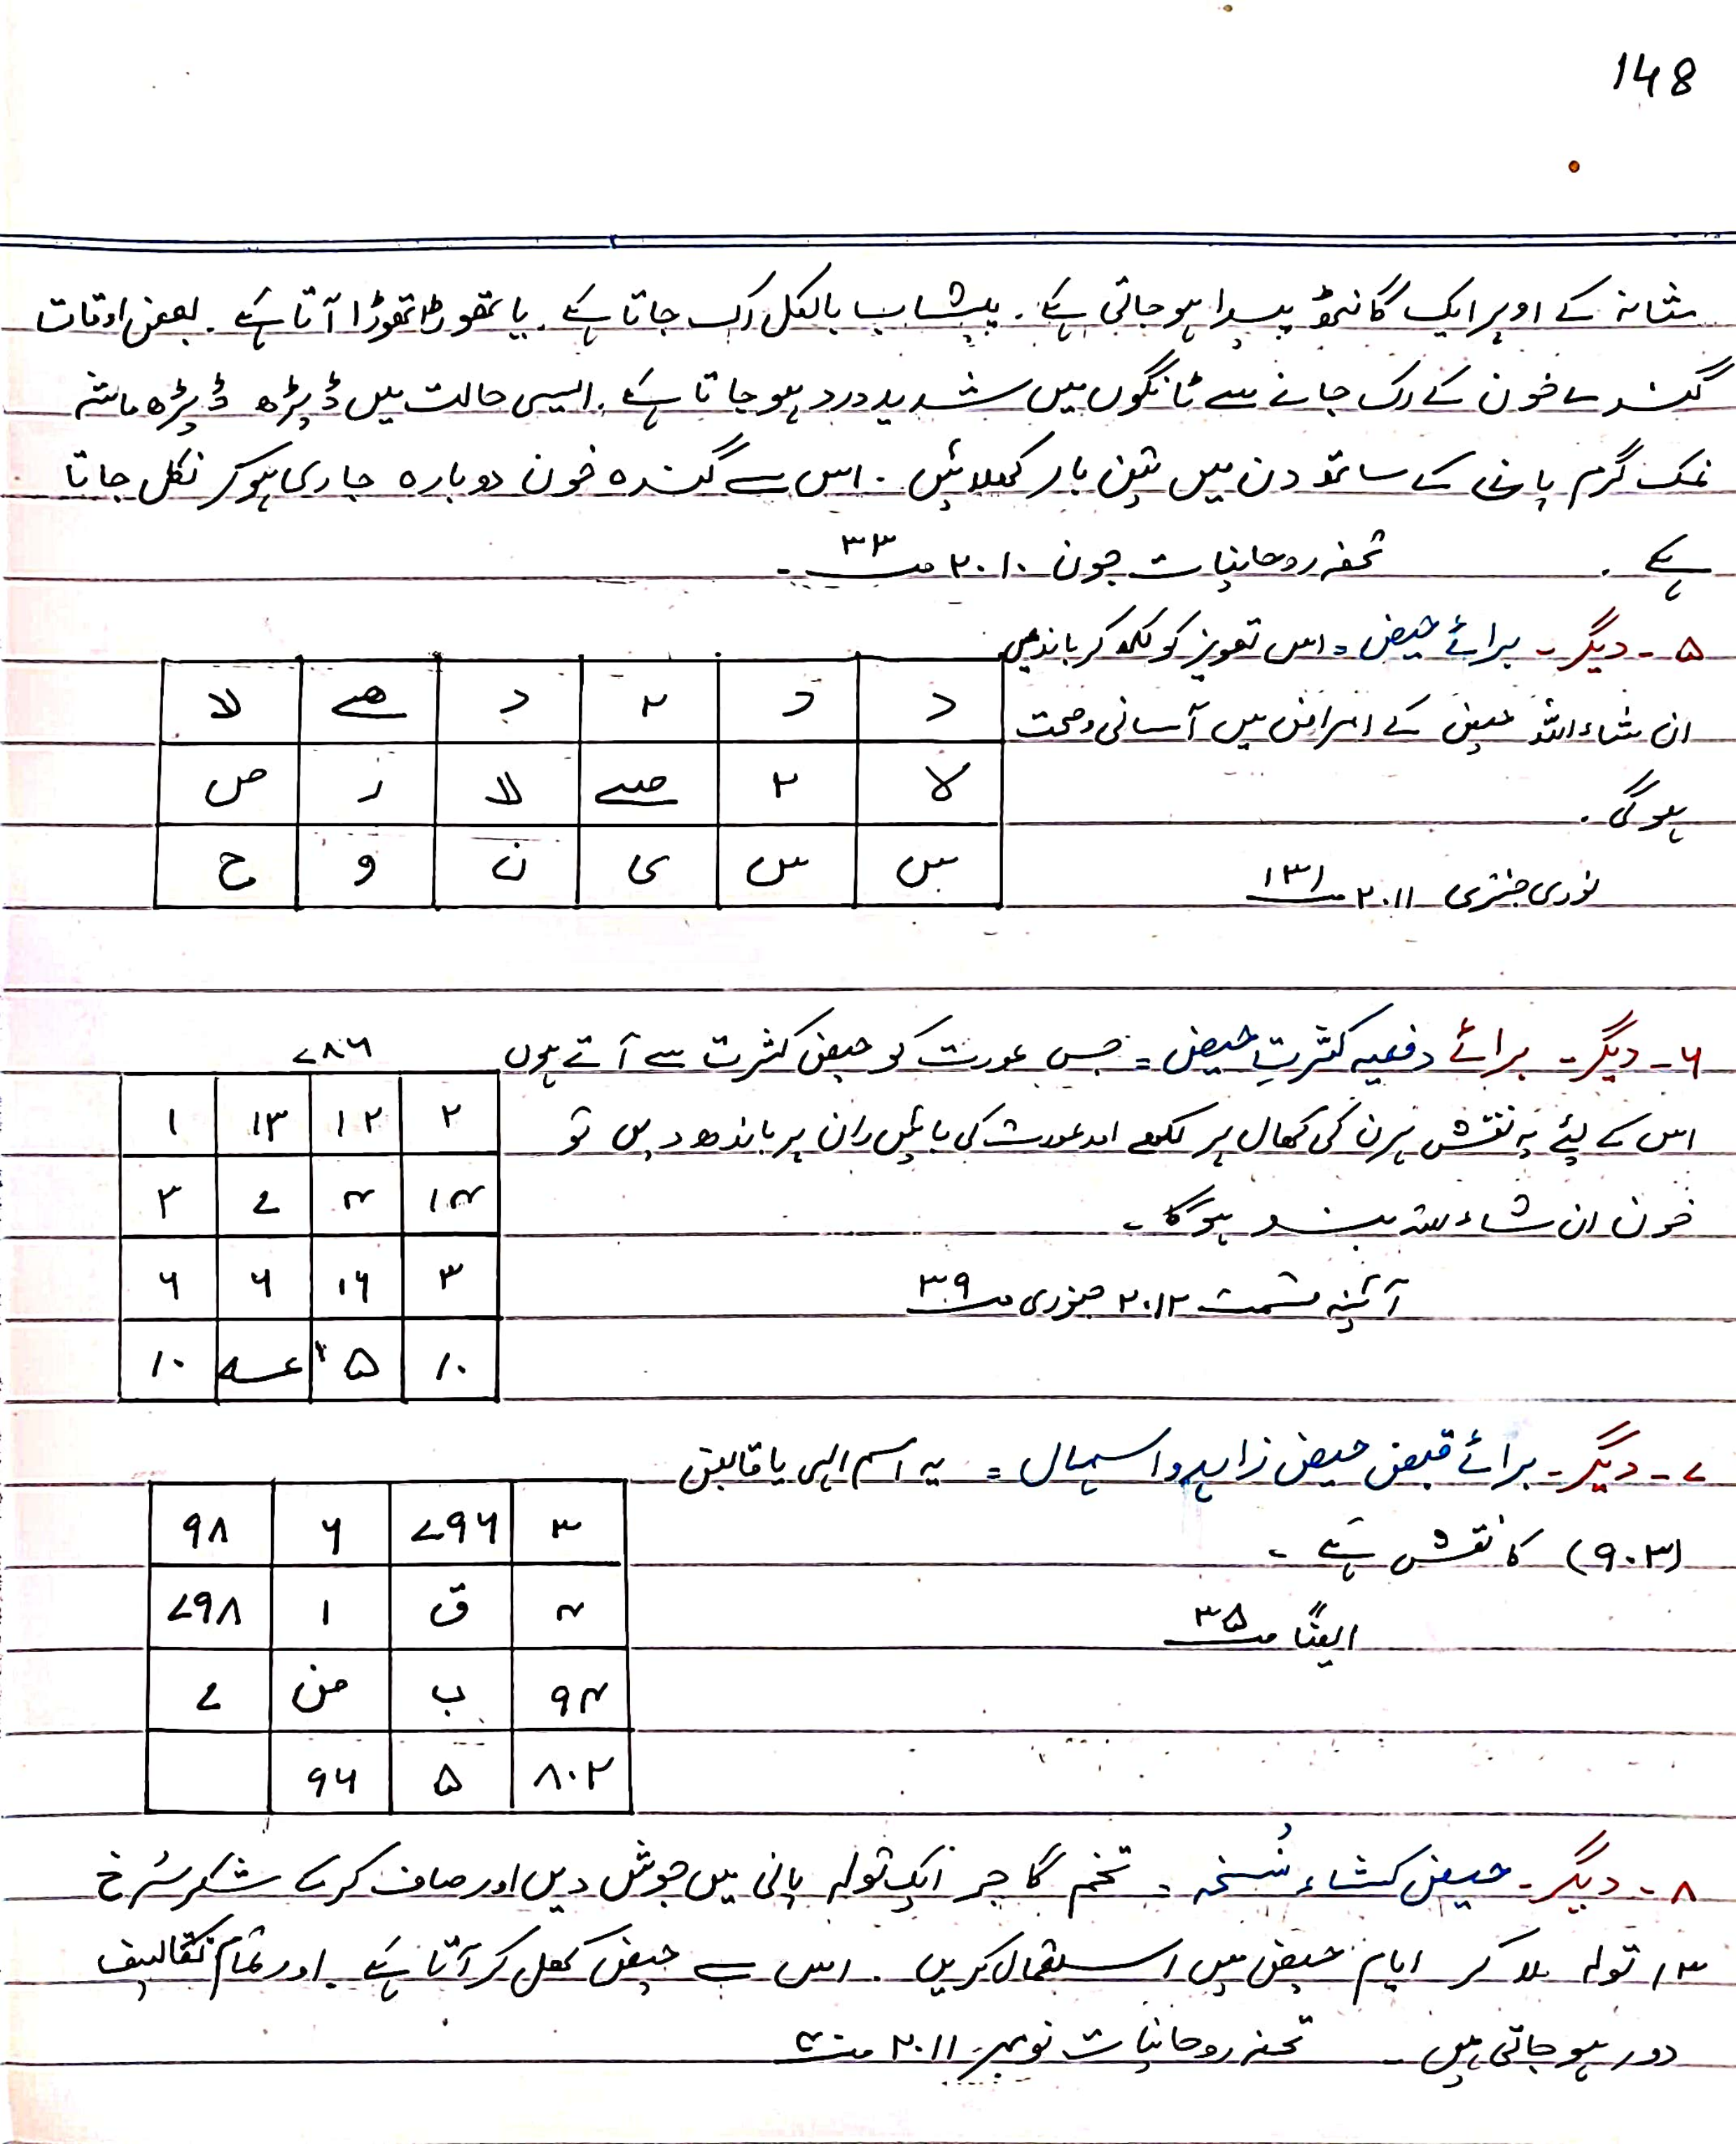 148
مثانہ کے اوپر ایک گانٹھ پیدا ہو جاتی ہے۔ پیشاب بالکل رک جاتا ہے۔ یا تھوڑا تھوڑا آتا ہے۔ بعض اوقات
گندے خون کے رک جانے سے ٹانگوں میں شدید درد ہو جاتا ہے۔ ایسی حالت میں ڈیڑھ ڈیڑھ ماشہ
نمک گرم پانی کے ساتھ دن میں تین بار کھلائیں۔ اس سے گندہ خون دوبارہ جاری ہو کر نکل جاتا
ہے۔ تحفہ روحانیات جون ۲۰۱۰ صـ ۳۳
۵۔ دیگر۔ برائے حیض = اس تعویز کو لکھ کر باندھیں
ان شاء اللہ حیض کے امراض میں آسانی و صحت
ہو گی۔
نوری جنتری ۲۰۱۱ صـ ۱۳۱
د د ۲ د ھے لا
لا ۲ صے لا ر ص
س س ی ن و ح
۶۔ دیگر۔ برائے دفعیہ کثرتِ حیض = جس عورت کو حیض کثرت سے آتے ہوں
اس کے لئے یہ نقش ہرن کی کھال پر لکھے اور عورت کی بائیں ران پر باندھ دیں تو
خون ان شاء اللہ بند ہوگا۔
آئینہ قسمت ۲۰۱۲ جنوری صـ ۳۹
۷۸۶
۲ ۱۲ ۱۳ ۱
۱۴ ۴ ۷ ۲
۳ ۱۶ ۶ ۶
۱۰ ۵ عـہ ۱۰
۷۔ دیگر۔ برائے قبض حیض زاید و اسہال = یہ اسم الہی یا قابض
(۹۰۳) کا نقش ہے۔
ایضاً صـ ۳۵
۳ ۷۹۶ ۶ ۹۸
۴ ق ا ۷۹۸
۹۴ ب ض ۷
۸۰۲ ۵ ۹۶
۸۔ دیگر۔ حیض کشاء نُسخہ = تخم گاجر ایک تولہ پانی میں جوش دیں اور صاف کر کے شکر سُرخ
۱۳ تولہ ملا کر ایام حیض میں استعمال کریں۔ اس سے حیض کھل کر آتا ہے۔ اور تمام تکالیف
دور ہو جاتی ہیں۔ تحفہ روحانیات نومبر ۲۰۱۱